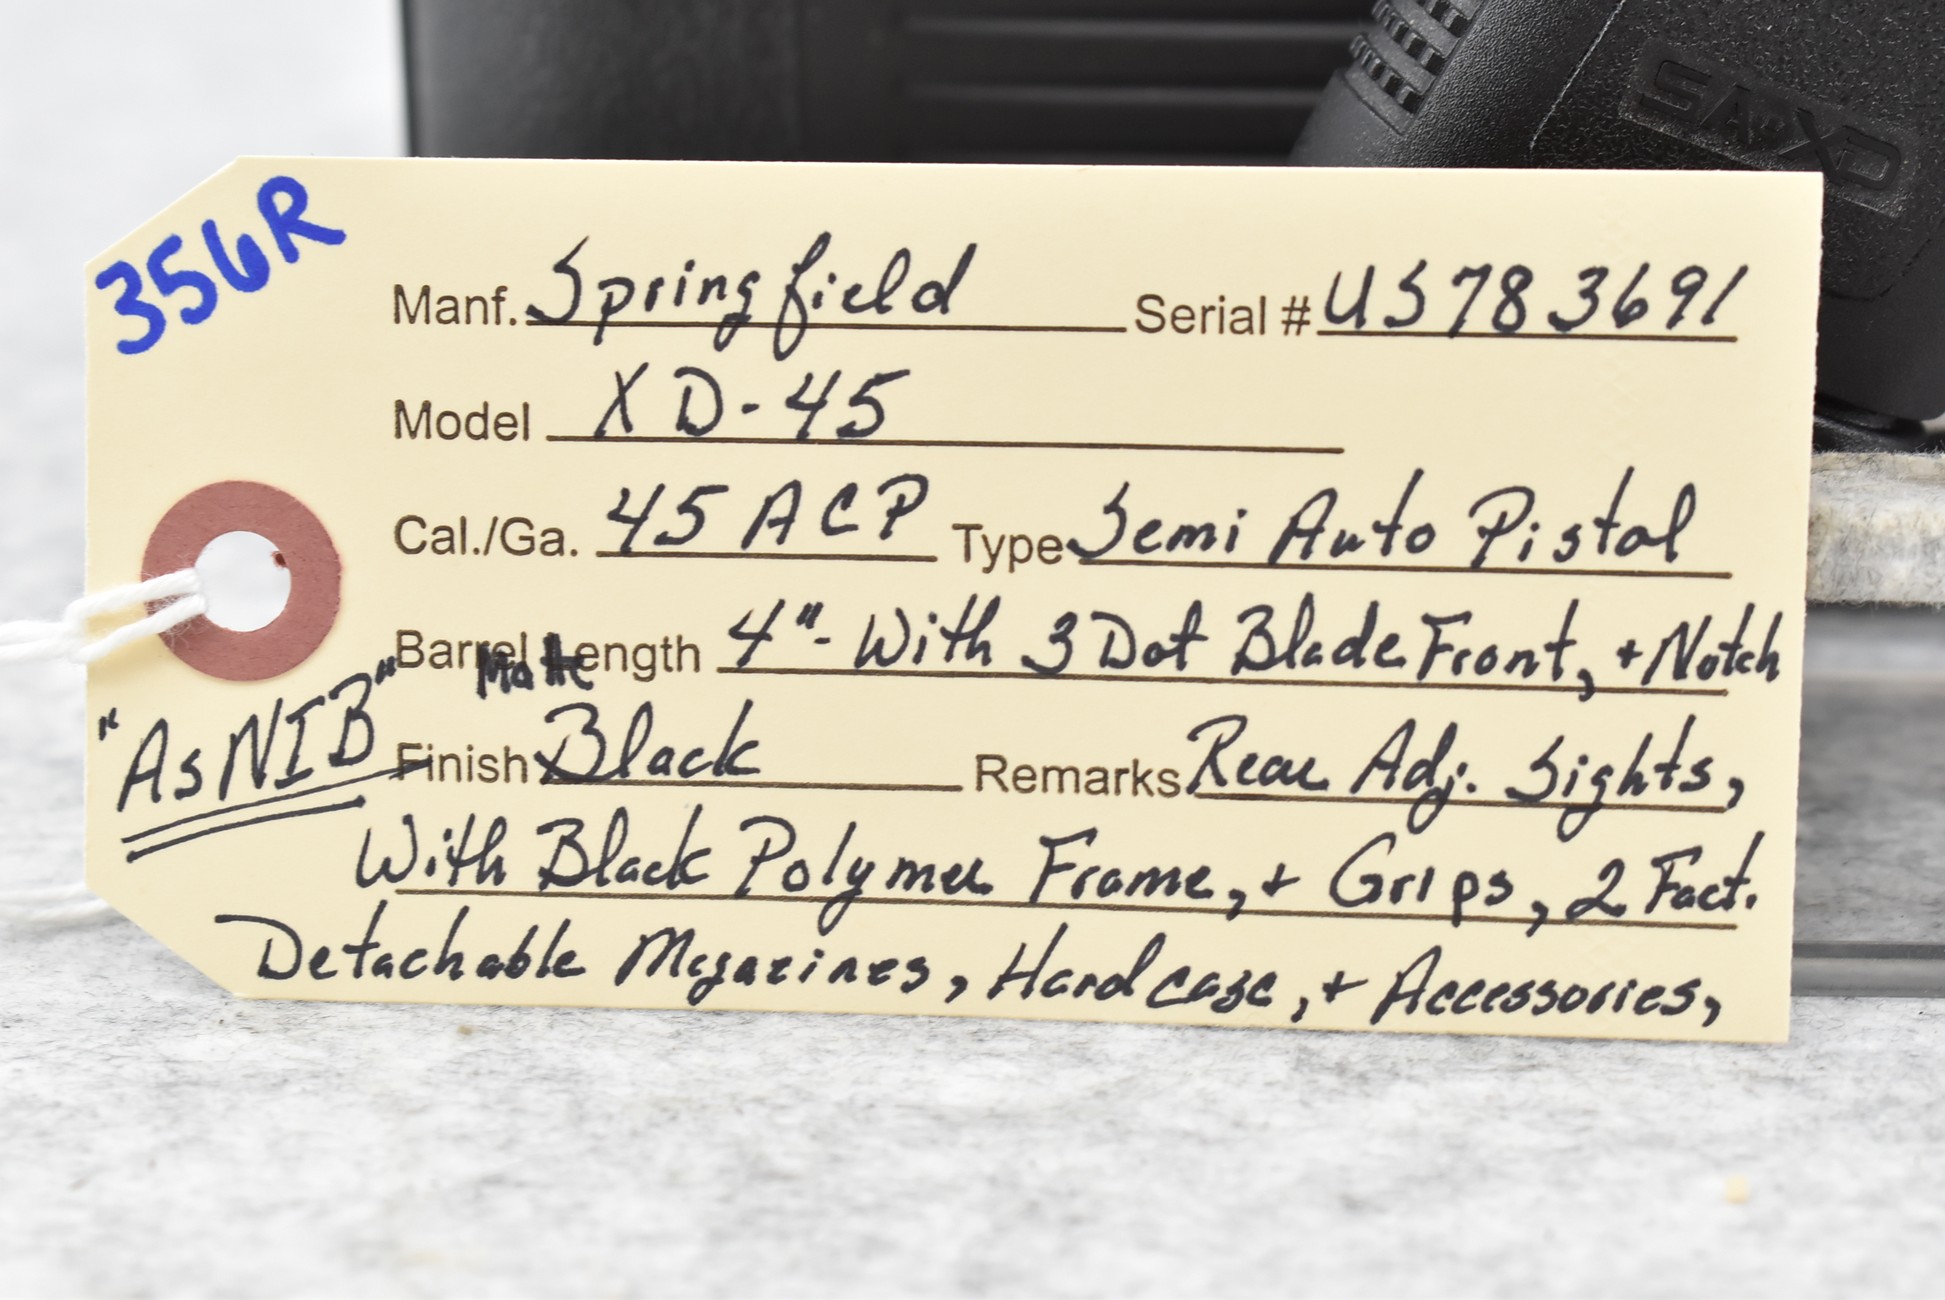 SA-XD
356R
Manf. Springfield Serial # US783691
Model XD-45
Cal./Ga. 45 ACP Type Semi Auto Pistol
Barrel Length 4"- With 3 Dot Blade Front, + Notch
Matte
"As NIB" Finish Black Remarks Rear Adj. Sights,
With Black Polymer Frame, + Grips, 2 Fact.
Detachable Magazines, Hard case, + Accessories,